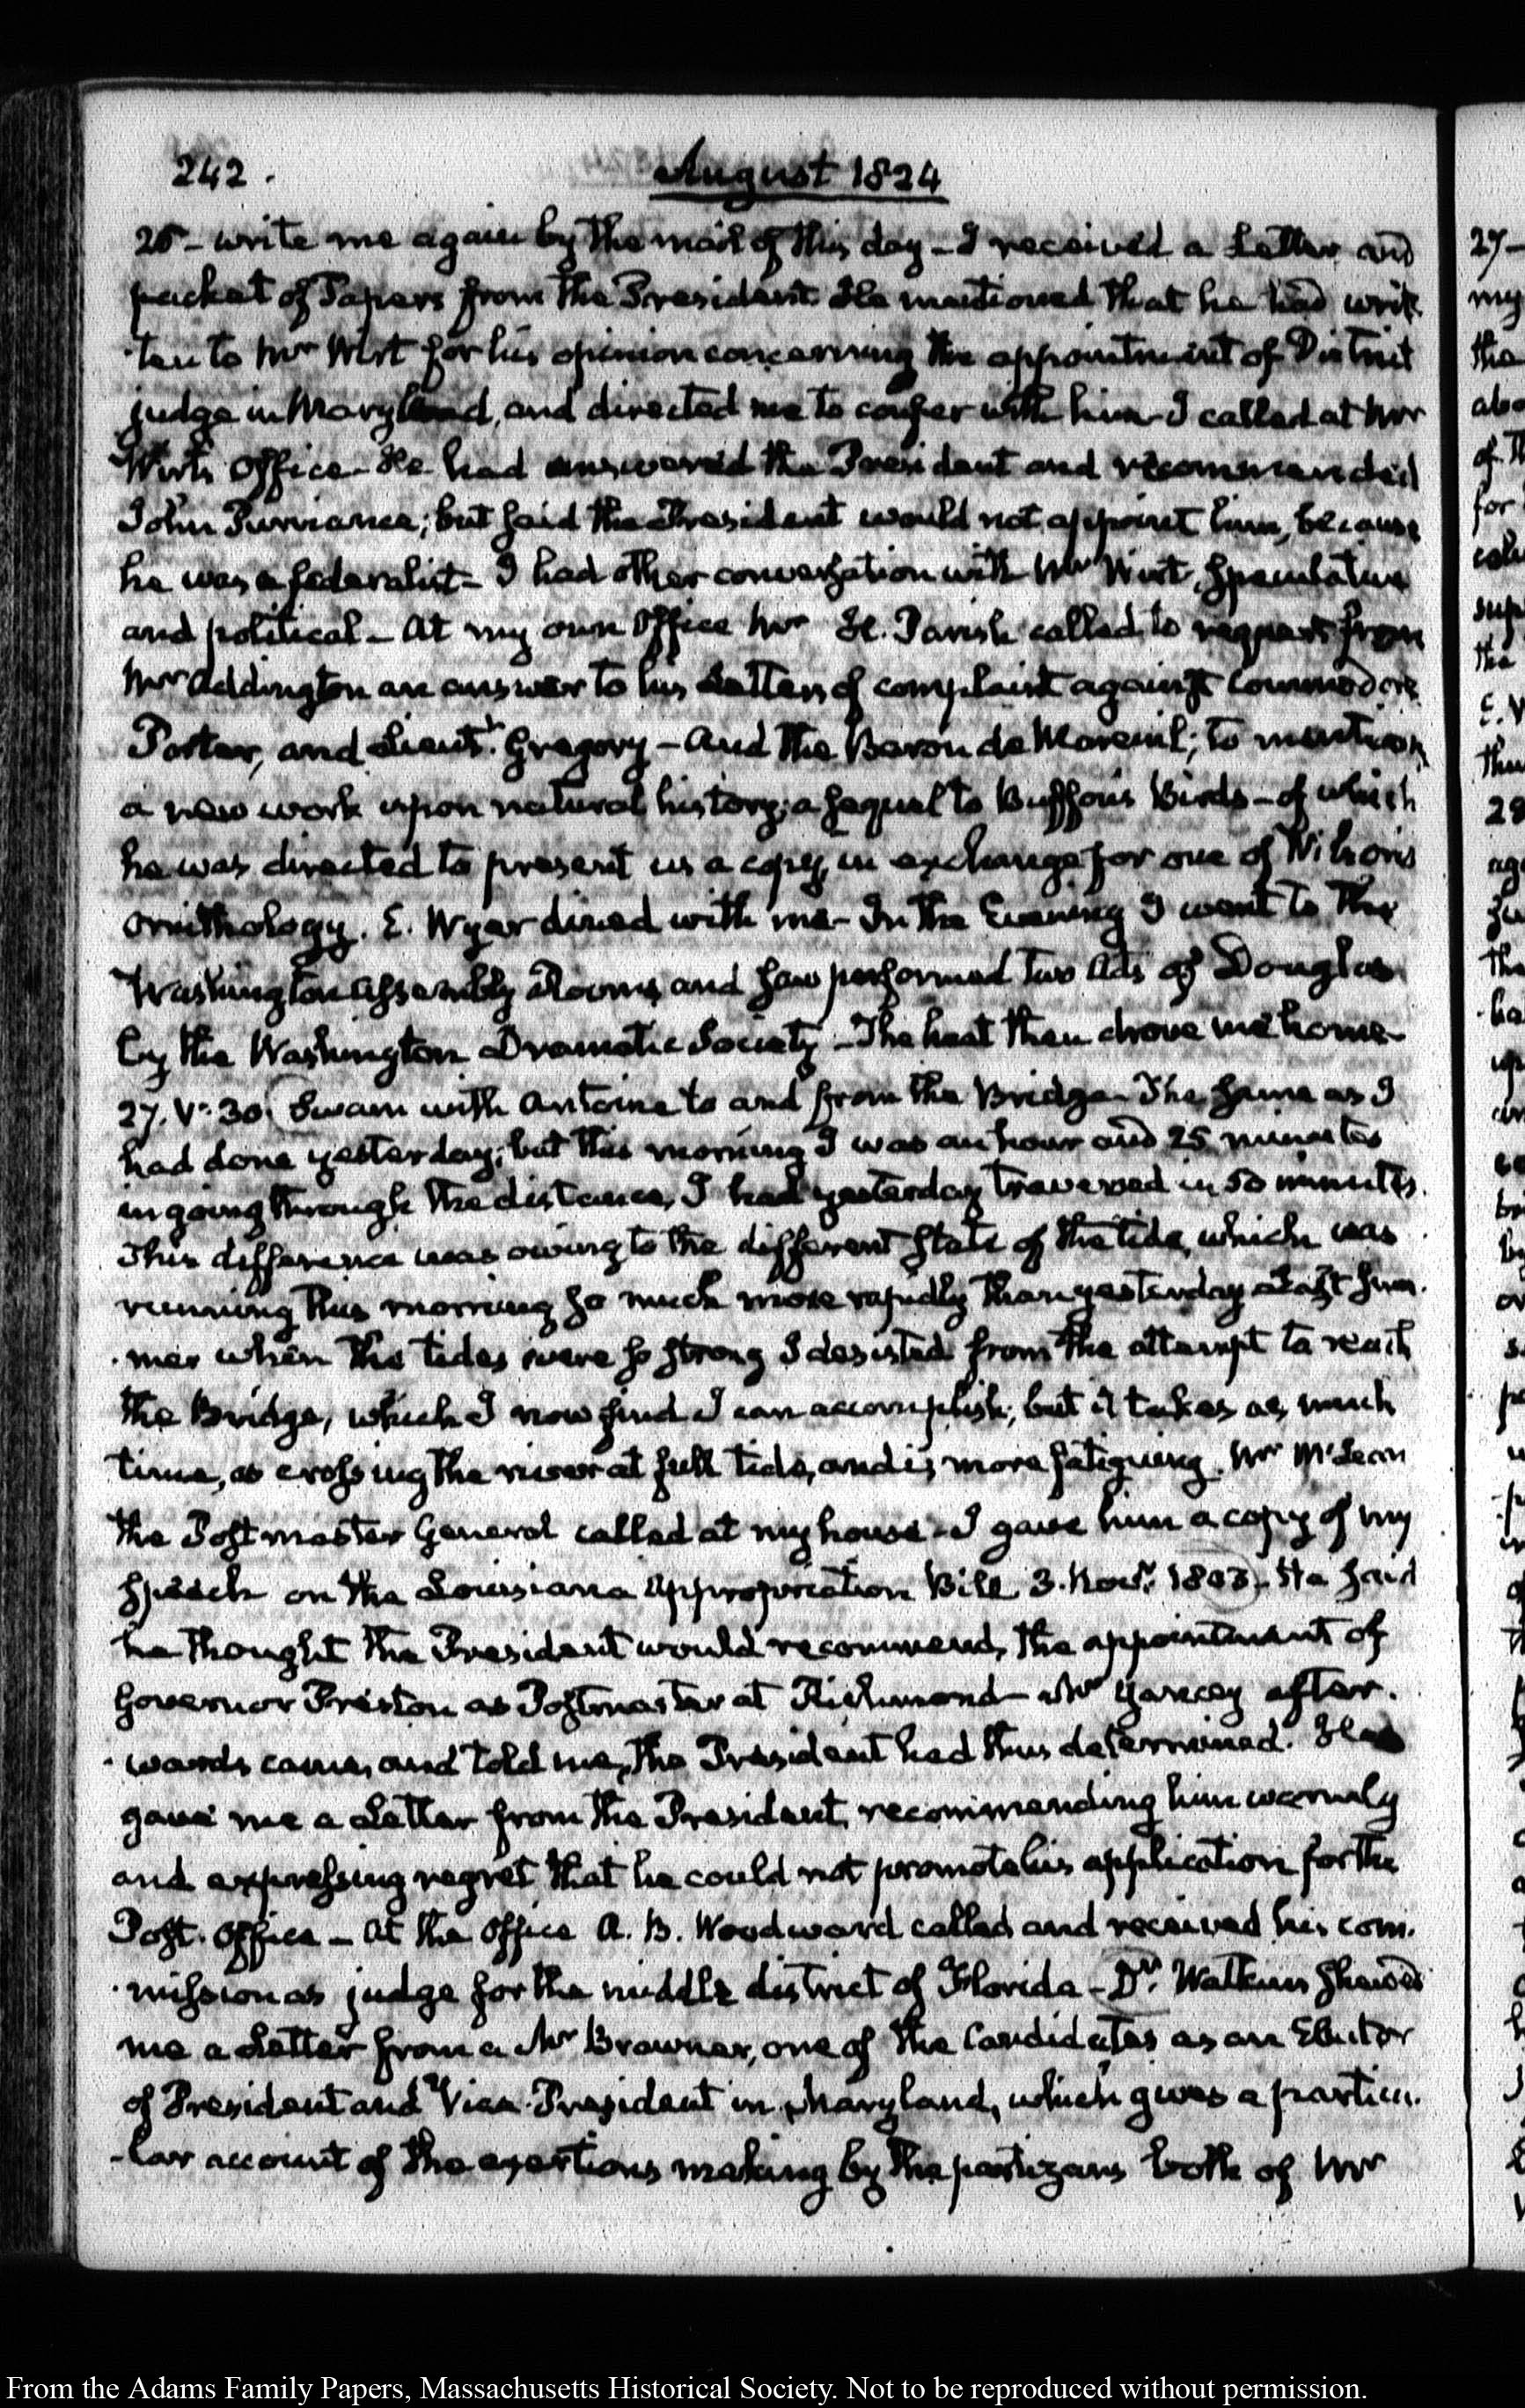 242. August 1824
26 - write me again by the mail of this day - I received a Letter and
packet of Papers from the President. He mentioned that he had writ-
ten to Mr Wirt for his opinion concerning the appointment of District
judge in Maryland, and directed me to confer with him - I called at Mr
Wirt's Office - He had answered the President and recommended
John Purviance; but said the President would not appoint him, because
he was a federalist - I had other conversation with Mr Wirt, speculative
and political - At my own Office Mr H. Parish called to request from
Mr Addington an answer to his Letters of complaint against Commodore
Porter, and Lieutt. Gregory - And the Baron de Mareuil; to mention
a new work upon natural history; a sequel to Buffon's Birds - of which
he was directed to present us a copy, in exchange for one of Wilson's
ornithology. E. Wyer dined with me - In the Evening I went to the
Washington Assembly Rooms, and saw performed two Acts of Douglas
by the Washington Dramatic Society - The heat then drove me home -
27. V: 30. Swam with Antoine to and from the Bridge - The same as I
had done yesterday; but this morning I was an hour and 25 minutes
in going through the distance, I had yesterday traversed in 50 minutes.
This difference was owing to the different state of the tide, which was
running this morning so much more rapidly than yesterday. Last sum-
-mer when the tides were so strong I desisted from the attempt to reach
the Bridge, which I now find I can accomplish; but it takes as much
time, as crossing the river at full tide, and is more fatiguing. Mr McLean
the Postmaster General called at my house - I gave him a copy of my
Speech on the Louisiana Appropriation Bill 3. Novr. 1803 - He said
he thought the President would recommend, the appointment of
Governor Preston as Postmaster at Richmond - Mr Yancey after-
-wards came, and told me, the President had thus determined. He
gave me a Letter from the President, recommending him warmly
and expressing regret that he could not promote his application for the
Post-Office - At the Office A. B. Woodward called and received his com-
-mission as judge for the middle district of Florida - Dr. Watkins shewed
me a Letter from a Mr Brawner, one of the Candidates as an Elector
of President and Vice-President in Maryland, which gives a particu-
-lar account of the exertions making by the partizans both of Mr
From the Adams Family Papers, Massachusetts Historical Society. Not to be reproduced without permission.